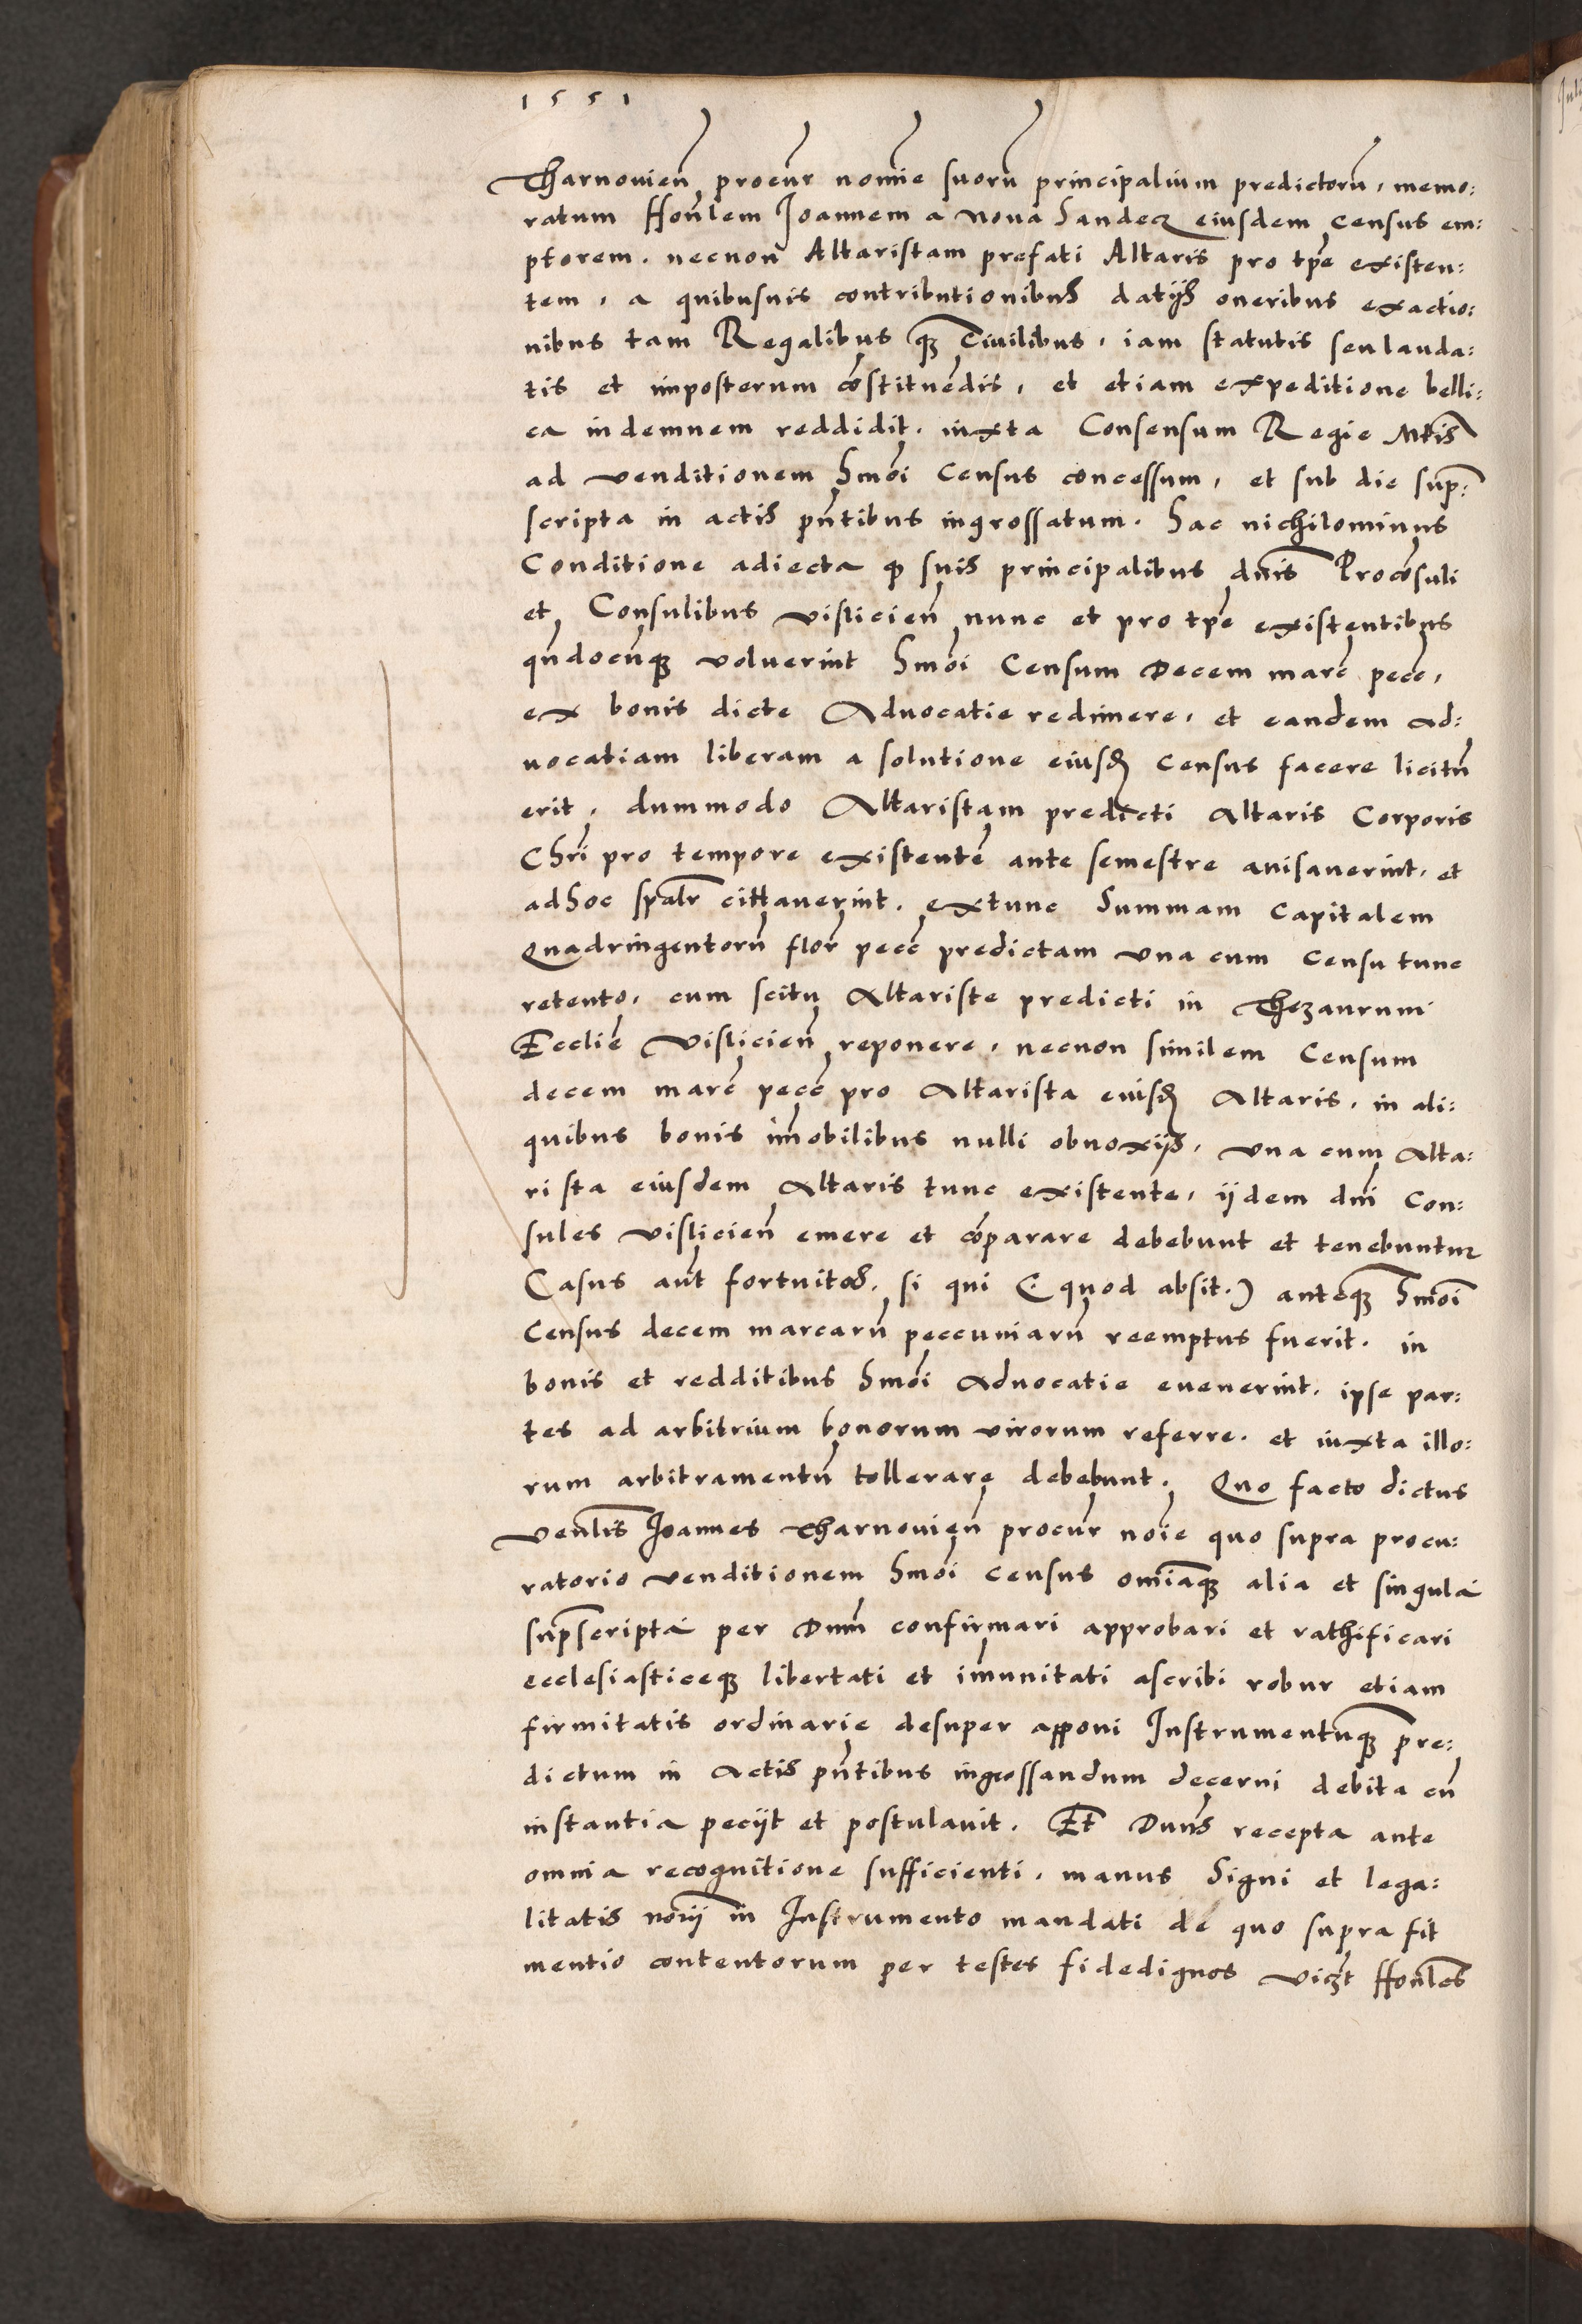 1551
Tharnouien̄ procur̄ nomīe suorū principalium predictorū, memo:
ratum Hon̄lem Joannem a noua Sandecz eiusdem census em:
ptorem. necnon Altaristam prefati Altaris pro tp̄e existen:
tem, a quibusuis contributionibus datijs oneribus exactio:
nibus tam Regalibus qз Ciuilibus, iam statutis seu lauda:
tis et imposterum cōstituēdis, et etiam expeditione belli:
ca indemnem reddidit. iuxta Consensum Regie Mt̄is
ad venditionem hmōi census concessum, et sub die sup̄:
scripta in actis pn̄tibus ingrossatum. hac nichilominus
Conditione adiecta ꝙ suis principalibus dn̄is Procōsuli
et Consulibus Visliciēn nunc et pro tp̄e existentibus
qn̄docūqз voluerint hmōi Censum Decem marc̄ pecc̄,
ex bonis dicte Aduocatie redimere, et eandem ad:
uocatiam liberam a solutione eiusd̄ census facere licitū
erit, dummodo Altaristam predicti Altaris Corporis
Chr̄i pro tempore existentē ante semestre auisauerint, et
adhoc sp̄alr̄ cittauerint. extunc Summam capitalem
Quadringentorū flor̄ pecc̄ predictam vna cum censu tunc
retento, cum scitu Altariste predicti in Thezaurum
Ecclīe Visliciēn reponere, necnon similem Censum
decem marc̄ pecc̄ pro Altarista eiusd̄ Altaris, in ali:
quibus bonis īmobilibus nulli obnoxijs, vna cum Alta:
rista eiusdem Altaris tunc existente, ijdem dn̄i Con:
sules Visliciēn emere et cōparare debebunt et tenebuntur
Casus aūt fortuitos, si qui (quod absit.) anteqз hmōi
Census decem marcarū peccuniarū reemptus fuerit. in
bonis et redditibus hmōi Aduocatie euenerint, ipse par:
tes ad arbitrium bonorum virorum referre. et iuxta illo:
rum arbitramentū tollerare debebunt. Quo facto dictus
Ven̄lis Joannes Tharnouien̄ procur̄ noīe quo supra procu:
ratorio venditionem hmōi census omīaqз alia et singula
sup̄scripta per Dnūm confirmari approbari et rathificari
ecclesiasticeqз libertati et īmunitati ascribi robur etiam
firmitatis ordinarie desuper apponi Instrumentūqз pre:
dictum in Actis pn̄tibus ingrossandum decerni debita cū
instantia pecijt et postulauit. Et Dnūs recepta ante
omnia recognitione sufficienti, manus Signi et lega:
litatis nor̄ij in Instrumento mandati de quo supra fit
mentio contentorum per testes fidedignos viczt Hon̄les